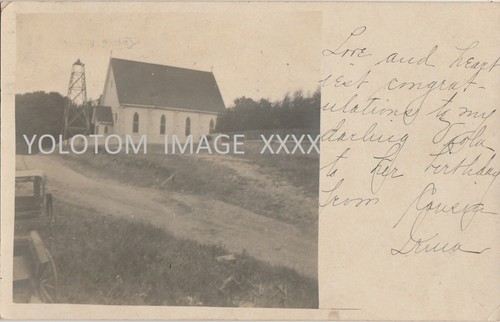 YOLOTOM IMAGE XXXX
Love and heart
iest congrat-
ulations to my
darling Lola
to her birthday
from Cousin